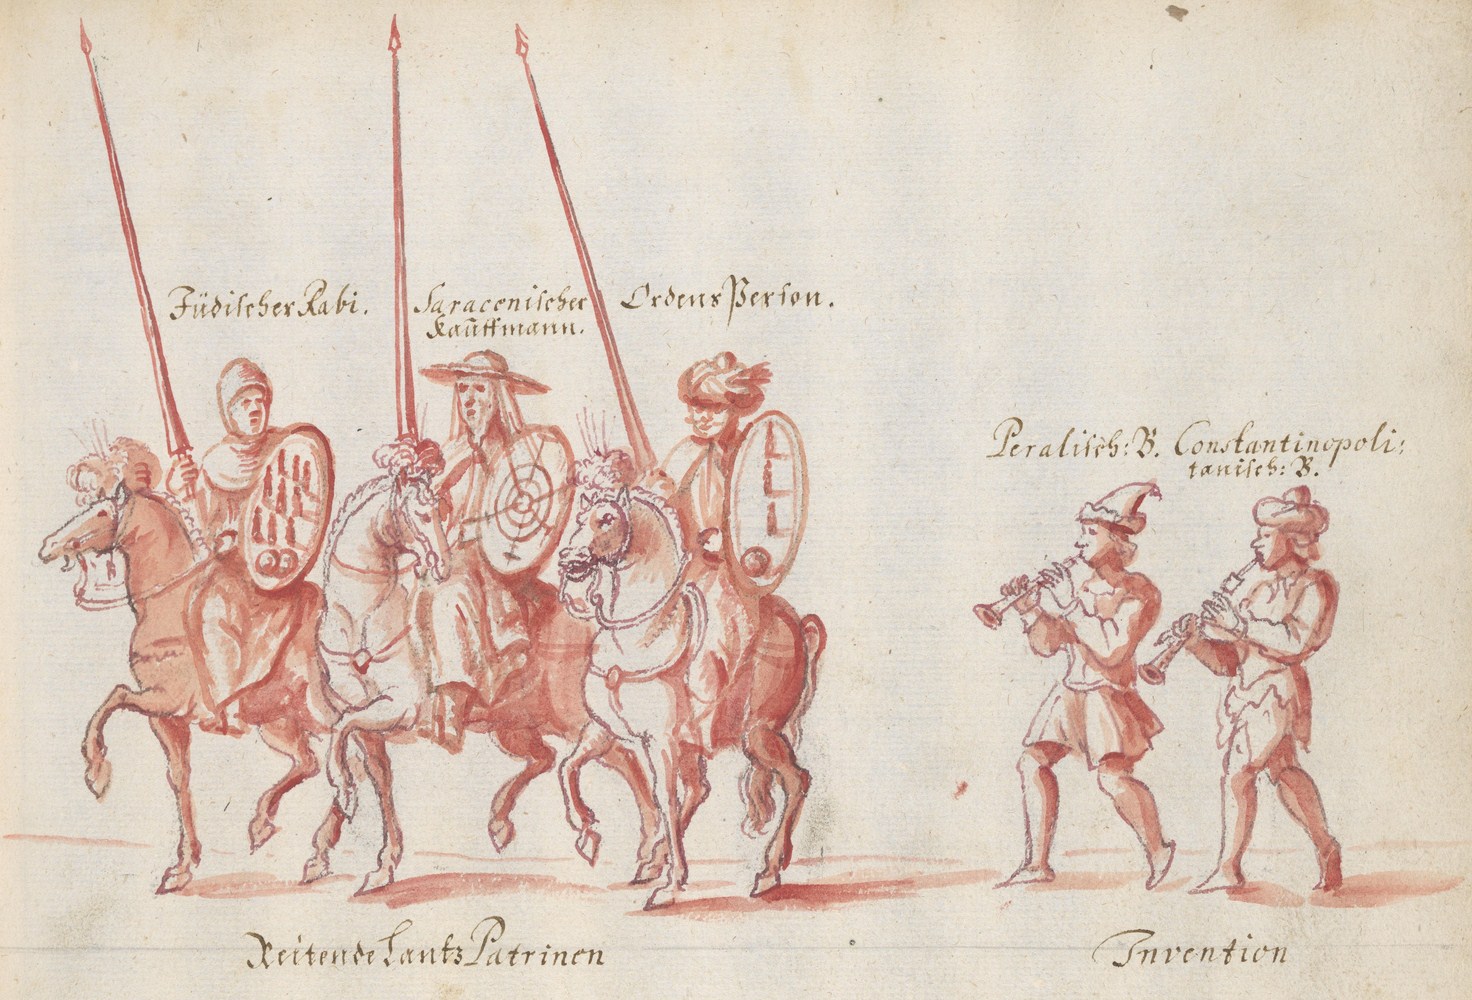 Jüdischer Rabi.
Saraconischer
Kauffmann.
Ordens Person.
Peralisch: B.
Constantinopoli:
tanisch: B.
Reitende Lantz Patrinen
Invention